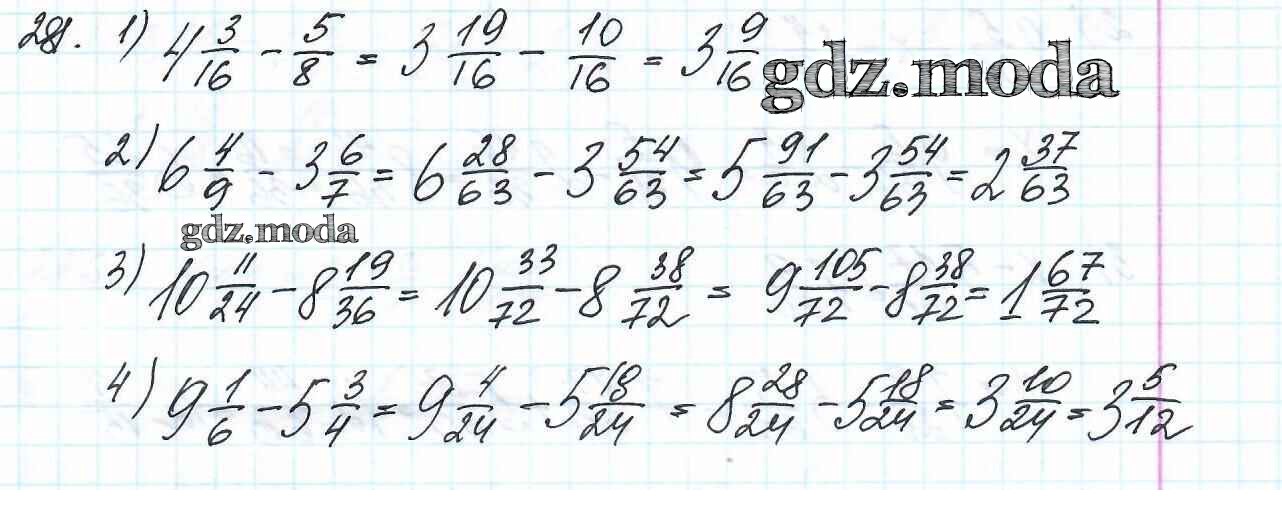 281. 1) 4 3/16 - 5/8 = 3 19/16 - 10/16 = 3 9/16
gdz.moda
2) 6 4/9 - 3 6/7 = 6 28/63 - 3 54/63 = 5 91/63 - 3 54/63 = 2 37/63
gdz.moda
3) 10 11/24 - 8 19/36 = 10 33/72 - 8 38/72 = 9 105/72 - 8 38/72 = 1 67/72
4) 9 1/6 - 5 3/4 = 9 4/24 - 5 18/24 = 8 28/24 - 5 18/24 = 3 10/24 = 3 5/12